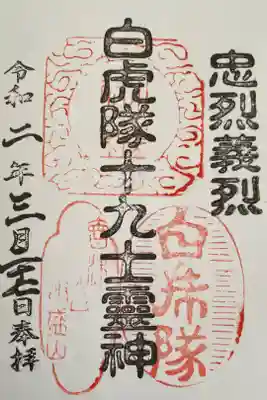 忠烈義烈
白虎隊十九士靈神
令和二年三月二七日奉拝
白虎隊
飯盛山